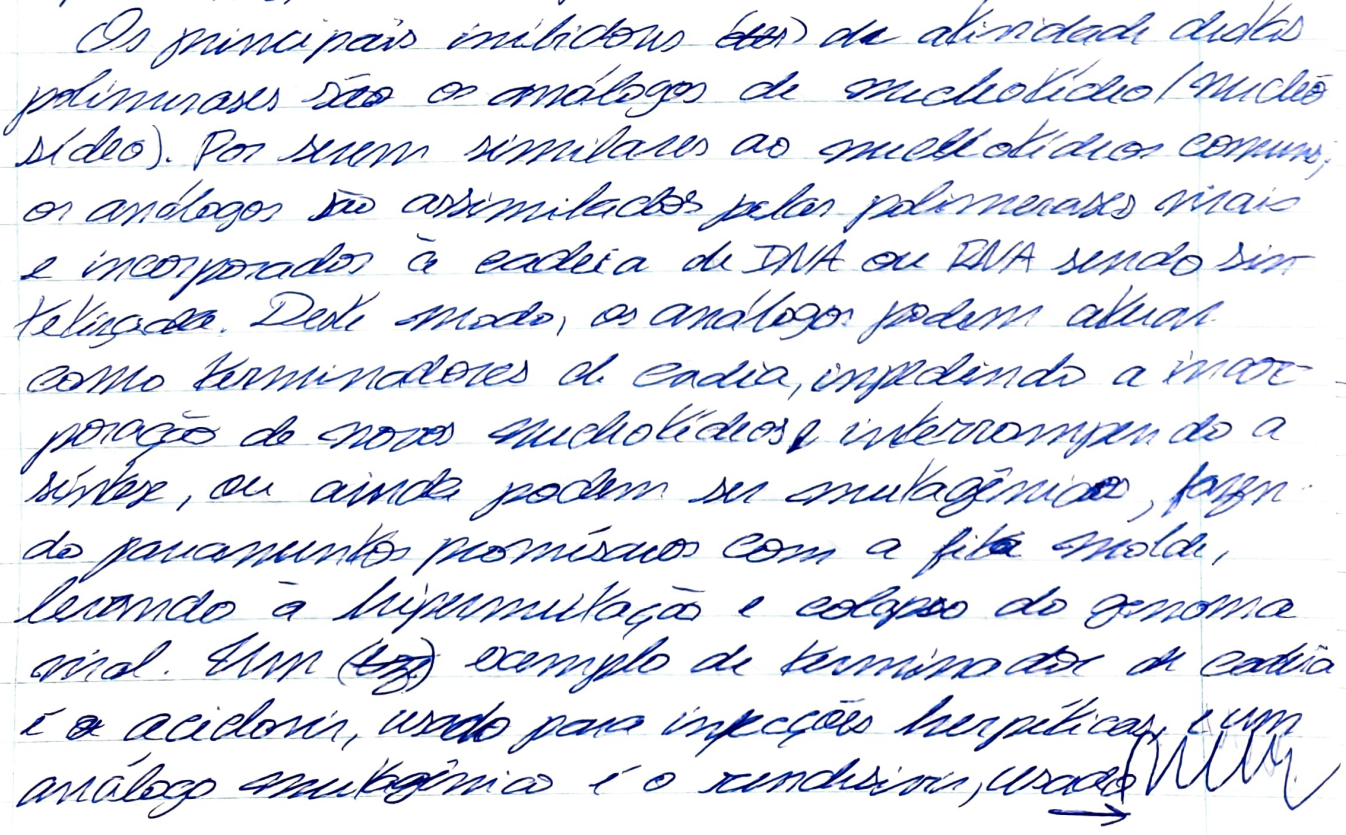 Os principais inibidores da atividade destas
polimerases são os análogos de nucleotídeo (nucleo
sídeo). Por serem similares ao nucleotídeos comuns,
os análogos são assimilados pelas polimerases virais
e incorporados à cadeia de DNA ou RNA sendo sin-
tetizada. Deste modo, os análogos podem atuar
como terminadores de cadeia, impedindo a incor-
poração de novos nucleotídeos, interrompendo a
síntese, ou ainda podem ser mutagênicos, fazen-
do pareamentos promíscuos com a fita molde,
levando à hipermutação e colapso do genoma
viral. Um exemplo de terminador de cadeia
é o aciclovir, usado para infecções herpéticas, e um
análogo mutagênico é o remdesivir, usado →